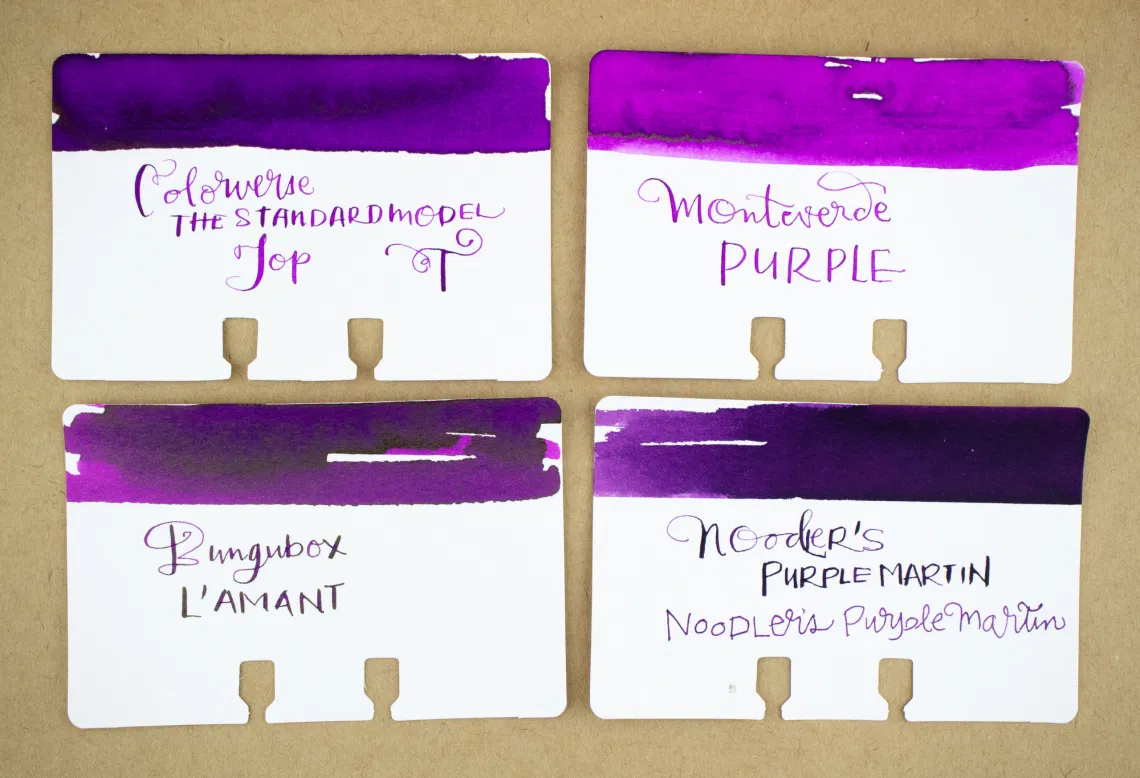 Colorverse
THE STANDARD MODEL
Top T
Monteverde
PURPLE
Bungubox
L'AMANT
Noodler's
PURPLE MARTIN
Noodler's Purple Martin